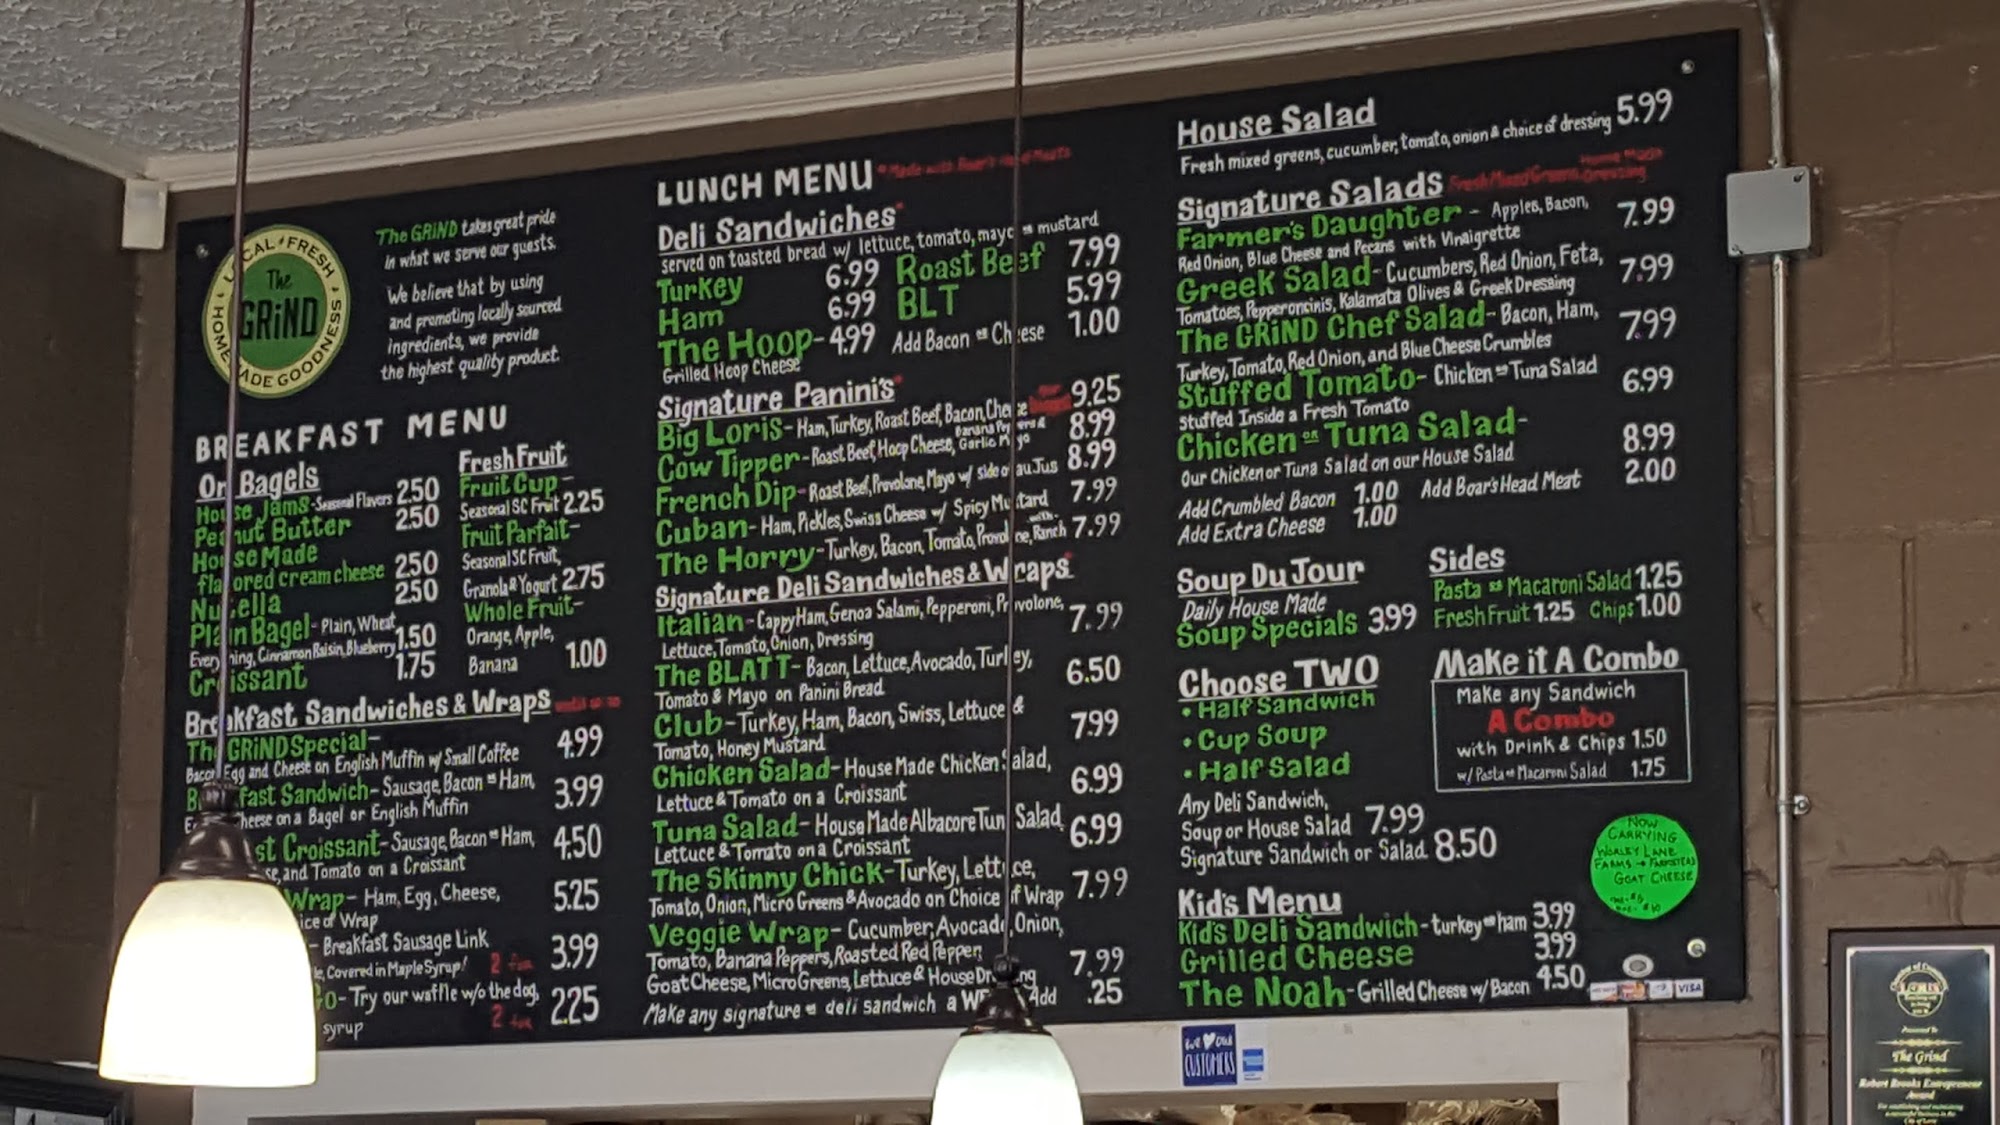 LOCAL • FRESH
The
GRiND
HOMEMADE GOODNESS
The GRiND takes great pride
in what we serve our guests.
We believe that by using
and promoting locally sourced
ingredients, we provide
the highest quality product.
BREAKFAST MENU
On Bagels
House Jams - Seasonal Flavors 2.50
Peanut Butter 2.50
House Made
flavored cream cheese 2.50
Nutella 2.50
Plain Bagel - Plain, Wheat,
Everything, Cinnamon Raisin, Blueberry 1.50
Croissant 1.75
Fresh Fruit
Fruit Cup -
Seasonal SC Fruit 2.25
Fruit Parfait -
Seasonal SC Fruit,
Granola & Yogurt 2.75
Whole Fruit -
Orange, Apple,
Banana 1.00
Breakfast Sandwiches & Wraps
The GRiND Special - 4.99
Bacon Egg and Cheese on English Muffin w/ Small Coffee
Breakfast Sandwich - Sausage, Bacon or Ham, 3.99
Cheese on a Bagel or English Muffin
Croissant - Sausage, Bacon or Ham, 4.50
and Tomato on a Croissant
Wrap - Ham, Egg, Cheese, 5.25
of Wrap
- Breakfast Sausage Link 3.99
Covered in Maple Syrup! 2 for
- Try our waffle w/o the dog, 2.25
syrup 2 for
LUNCH MENU * Made with Boar's Head Meats
Deli Sandwiches*
served on toasted bread w/ lettuce, tomato, mayo or mustard
Turkey 6.99 Roast Beef 7.99
Ham 6.99 BLT 5.99
The Hoop - 4.99 Add Bacon or Cheese 1.00
Grilled Hoop Cheese
Signature Panini's*
Big Loris - Ham, Turkey, Roast Beef, Bacon, Cheese 9.25
Cow Tipper - Roast Beef, Hoop Cheese, Banana Peppers & Garlic Mayo 8.99
French Dip - Roast Beef, Provolone, Mayo w/ side of au Jus 8.99
Cuban - Ham, Pickles, Swiss Cheese w/ Spicy Mustard 7.99
The Horry - Turkey, Bacon, Tomato, Provolone, with Ranch 7.99
Signature Deli Sandwiches & Wraps*
Italian - Cappy Ham, Genoa Salami, Pepperoni, Provolone, 7.99
Lettuce, Tomato, Onion, Dressing
The BLATT - Bacon, Lettuce, Avocado, Turkey, 6.50
Tomato & Mayo on Panini Bread
Club - Turkey, Ham, Bacon, Swiss, Lettuce & 7.99
Tomato, Honey Mustard
Chicken Salad - House Made Chicken Salad, 6.99
Lettuce & Tomato on a Croissant
Tuna Salad - House Made Albacore Tuna Salad, 6.99
Lettuce & Tomato on a Croissant
The Skinny Chick - Turkey, Lettuce, 7.99
Tomato, Onion, Micro Greens & Avocado on Choice of Wrap
Veggie Wrap - Cucumber, Avocado, Onion,
Tomato, Banana Peppers, Roasted Red Pepper, 7.99
Goat Cheese, Micro Greens, Lettuce & House Dressing
Make any signature or deli sandwich a Wrap Add .25
House Salad 5.99
Fresh mixed greens, cucumber, tomato, onion & choice of dressing
Signature Salads Fresh Mixed Greens, Home Made Dressing
Farmer's Daughter - Apples, Bacon, 7.99
Red Onion, Blue Cheese and Pecans with Vinaigrette
Greek Salad - Cucumbers, Red Onion, Feta, 7.99
Tomatoes, Pepperoncinis, Kalamata Olives & Greek Dressing
The GRiND Chef Salad - Bacon, Ham, 7.99
Turkey, Tomato, Red Onion, and Blue Cheese Crumbles
Stuffed Tomato - Chicken or Tuna Salad 6.99
Stuffed Inside a Fresh Tomato
Chicken or Tuna Salad - 8.99
Our Chicken or Tuna Salad on our House Salad
Add Crumbled Bacon 1.00 Add Boar's Head Meat 2.00
Add Extra Cheese 1.00
Soup Du Jour
Daily House Made
Soup Specials 3.99
Sides
Pasta or Macaroni Salad 1.25
Fresh Fruit 1.25 Chips 1.00
Choose TWO
• Half Sandwich
• Cup Soup
• Half Salad
Any Deli Sandwich,
Soup or House Salad 7.99
Signature Sandwich or Salad 8.50
Make it A Combo
Make any Sandwich
A Combo
with Drink & Chips 1.50
w/ Pasta or Macaroni Salad 1.75
Kid's Menu
Kid's Deli Sandwich - turkey or ham 3.99
Grilled Cheese 3.99
The Noah - Grilled Cheese w/ Bacon 4.50
NOW
CARRYING
WORLEY LANE
FARMS → FARMSTEAD
GOAT CHEESE
VISA
WE ♥ OUR
CUSTOMERS
Presented To
The Grind
Robert Brooks Entrepreneur
Award